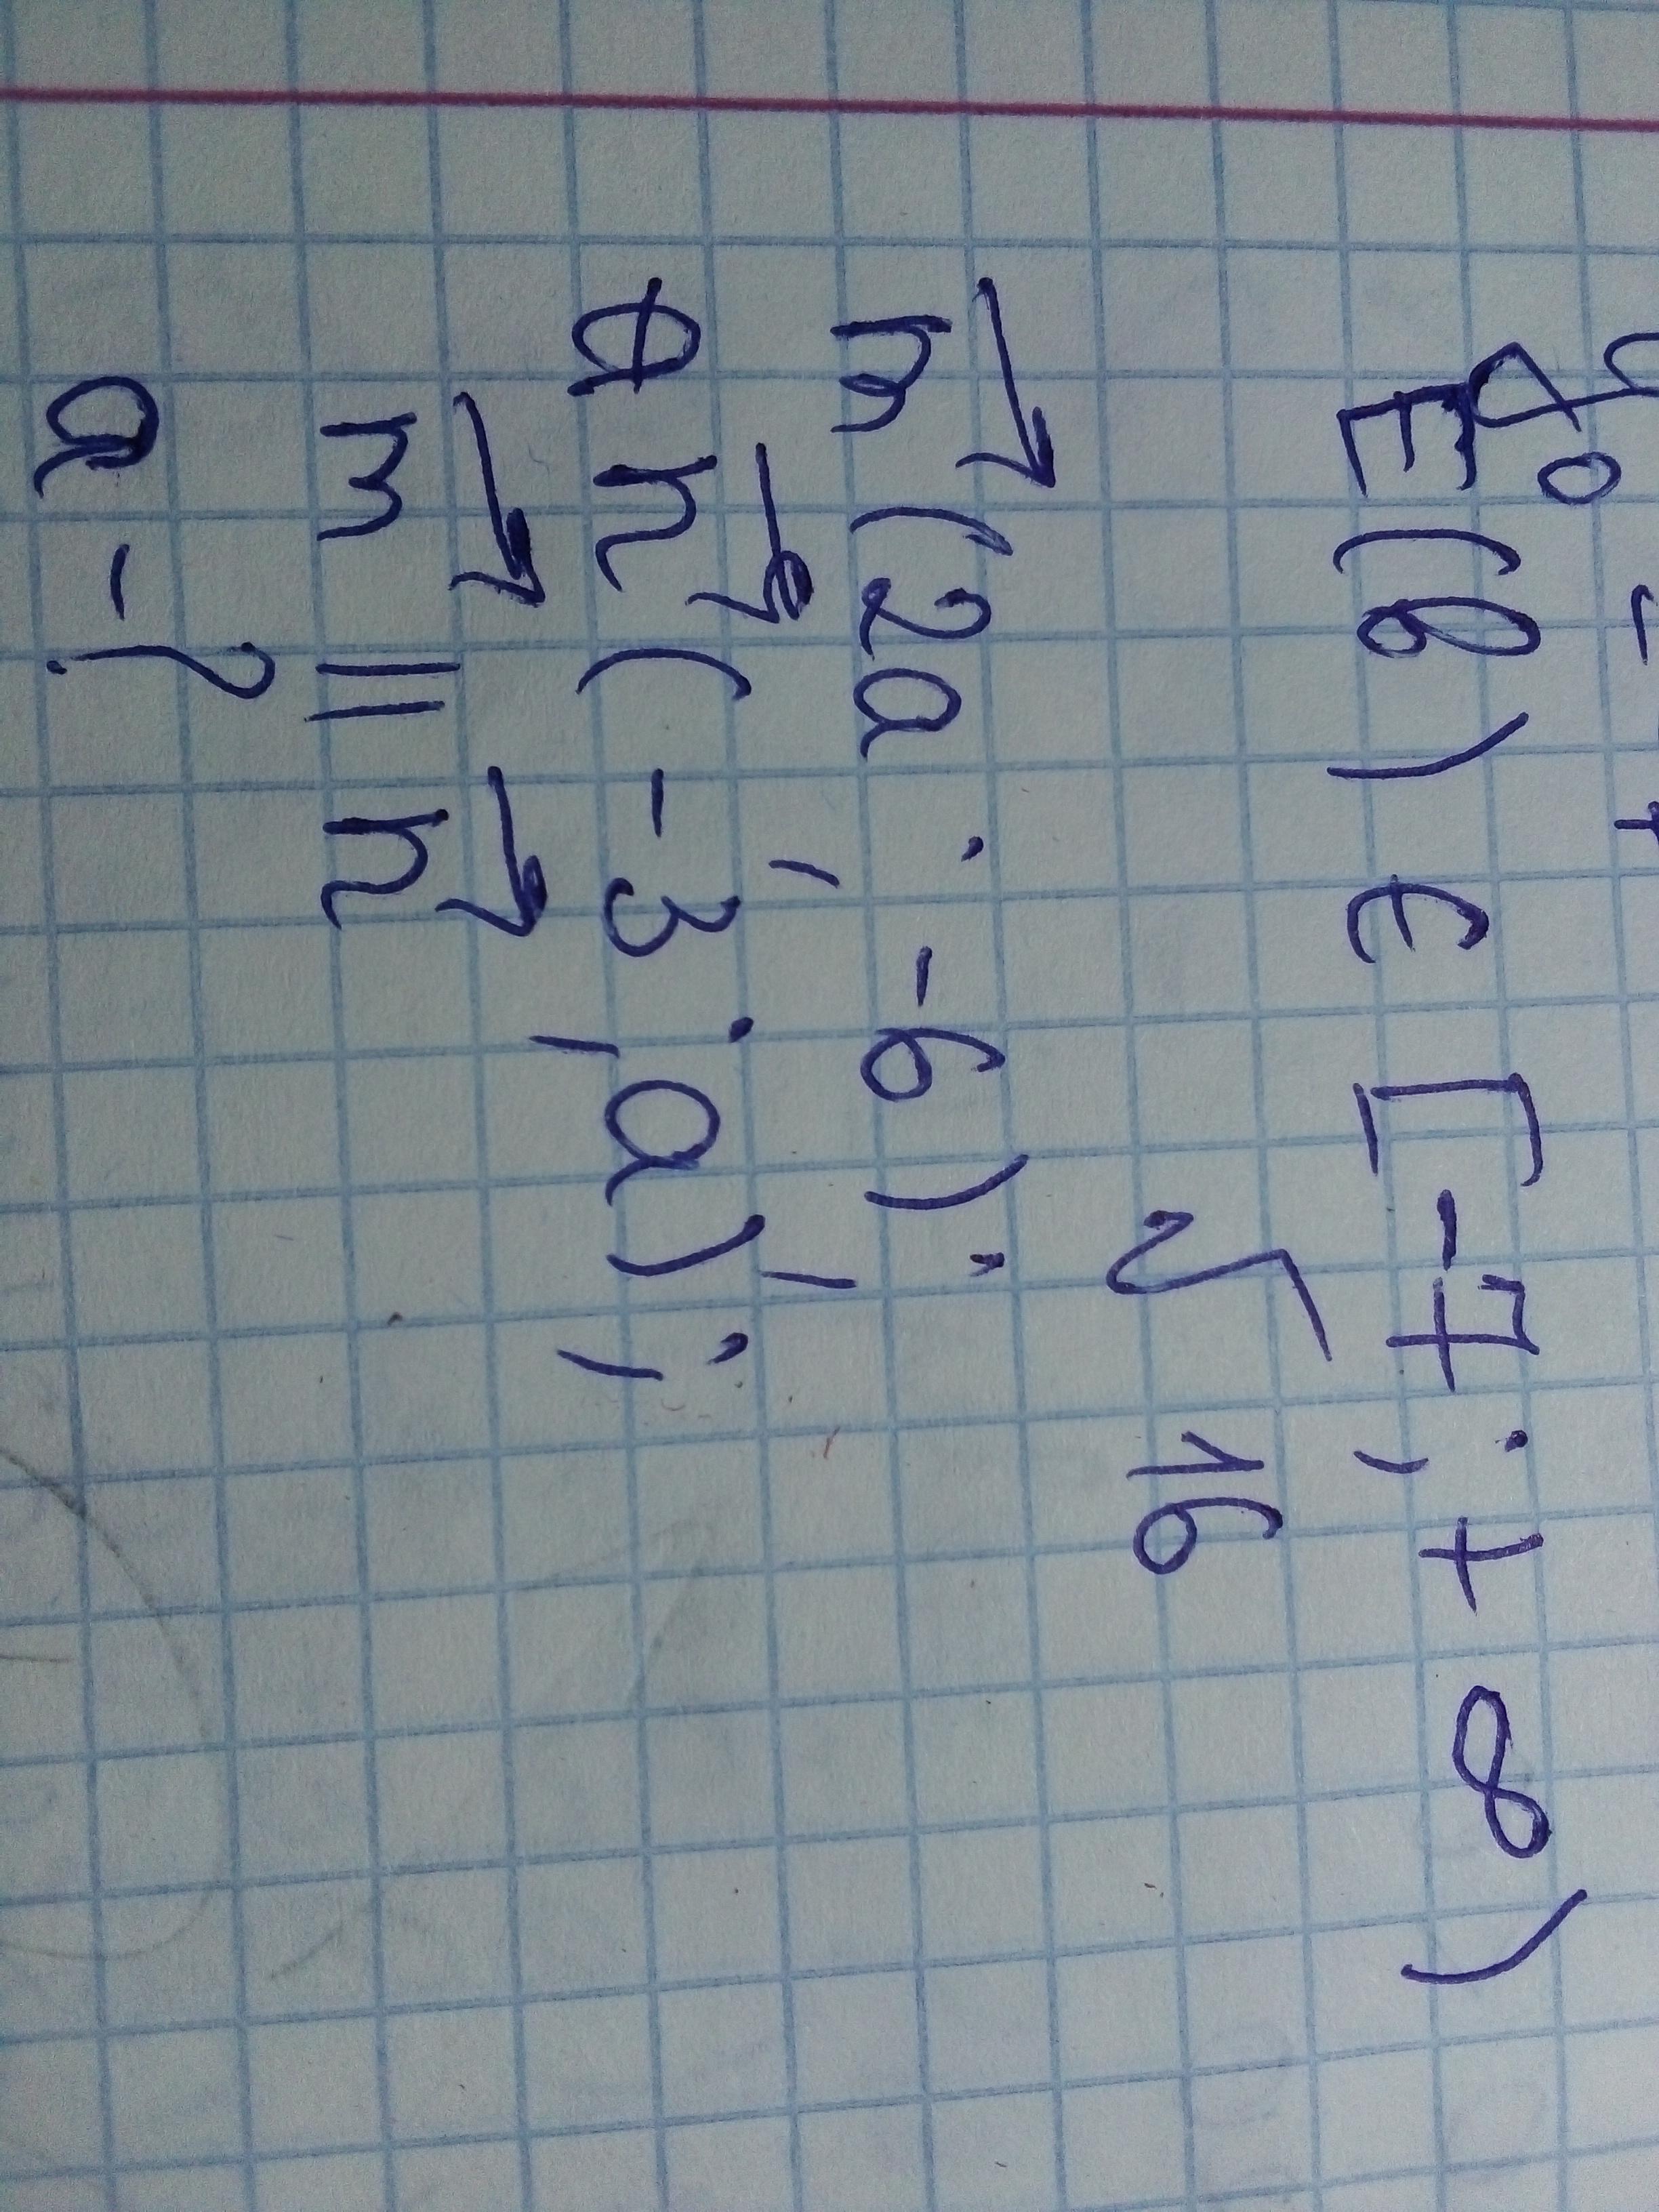 E(b) ∈ [-7; +∞)
√16
m⃗(2a; -6);
n⃗(-3; a);
m⃗ || n⃗
a - ?